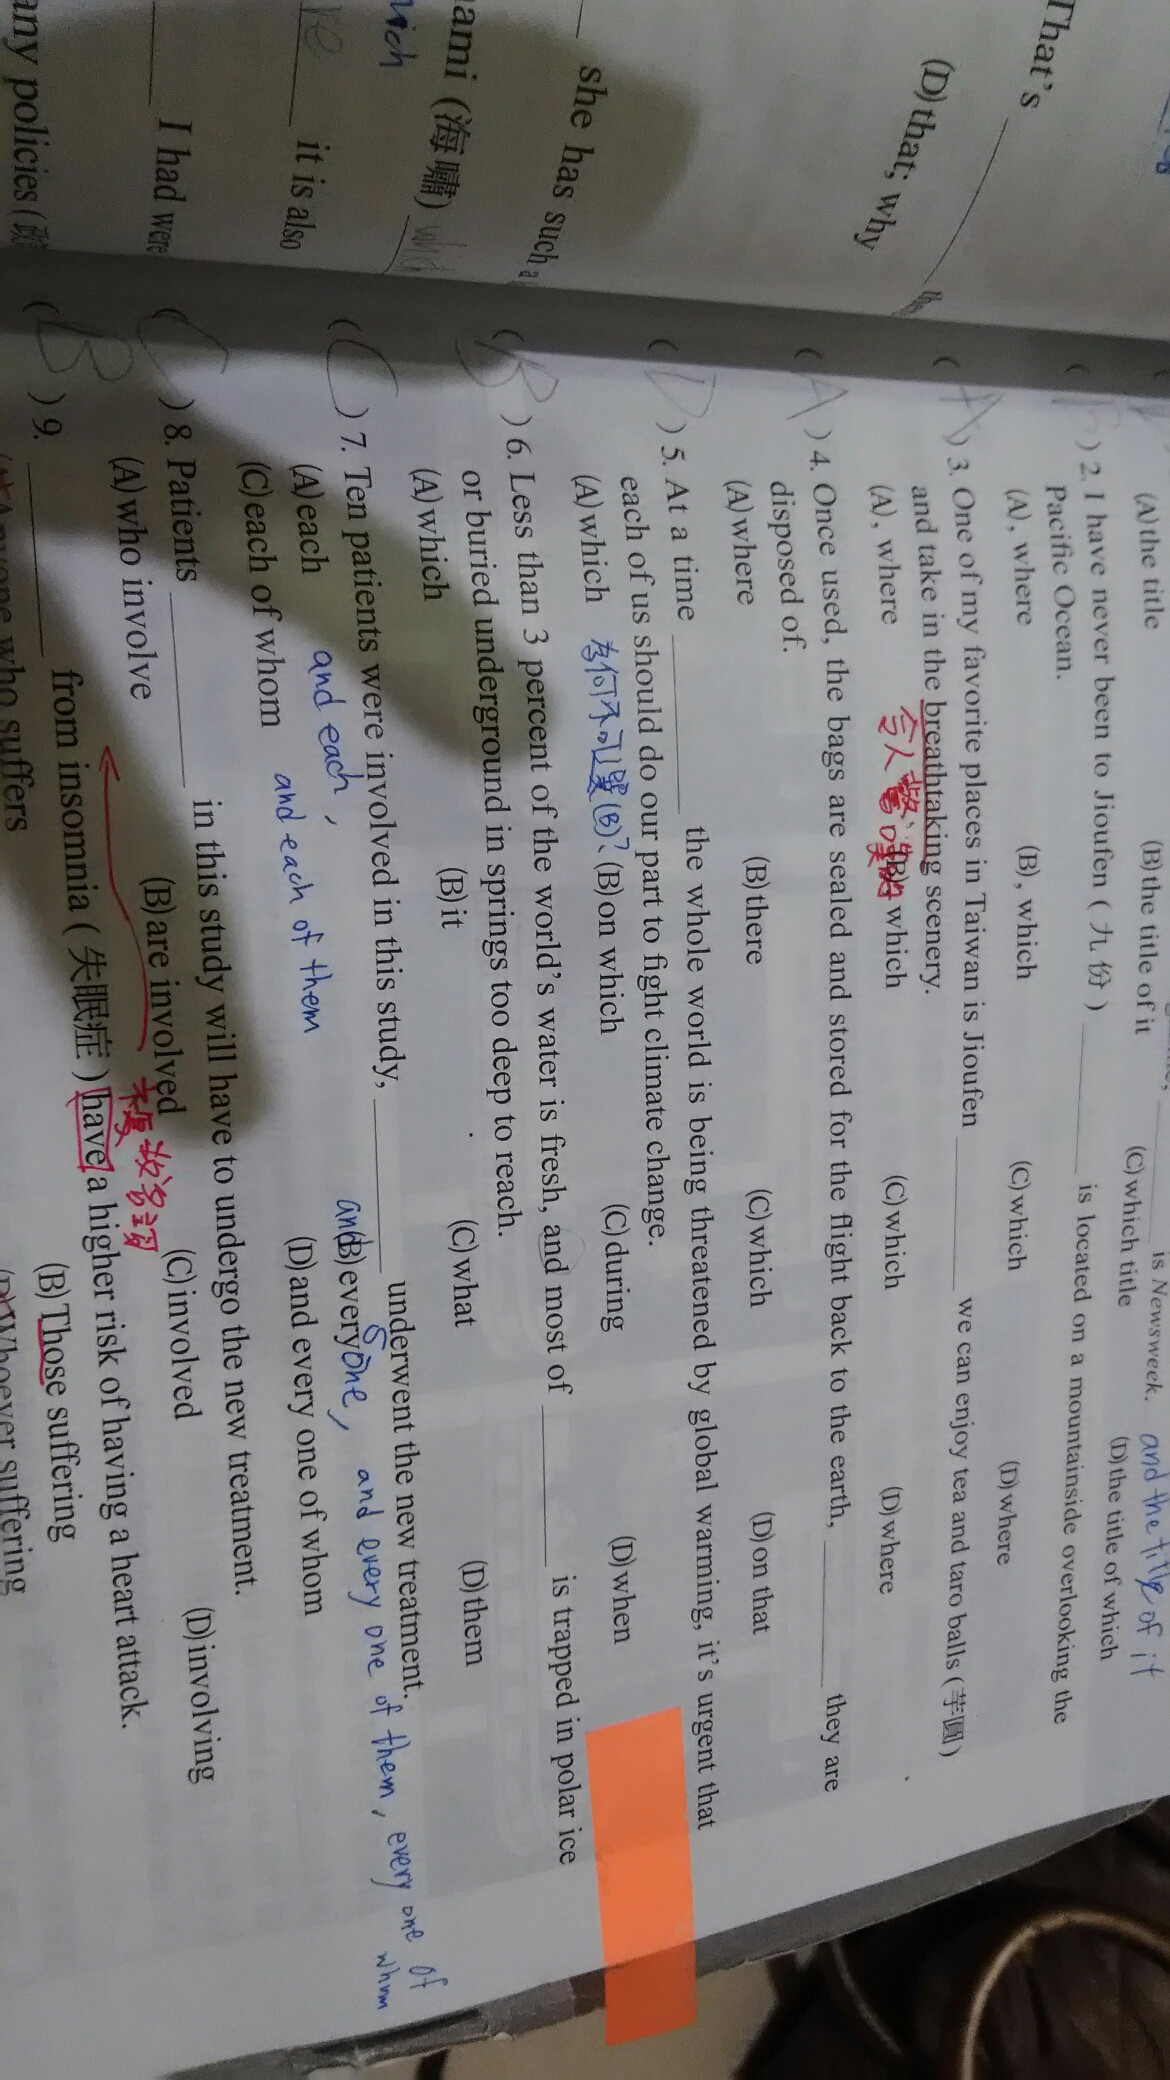 That's
(D)that; why
she has such a
ami (海嘯)
which
it is also
I had were
any policies (政
is Newsweek. and the title of it
(A)the title (B)the title of it (C)which title (D)the title of which
) 2. I have never been to Jioufen ( 九份 ) ______ is located on a mountainside overlooking the
Pacific Ocean.
(A), where (B), which (C)which (D)where
( A ) 3. One of my favorite places in Taiwan is Jioufen ______ we can enjoy tea and taro balls (芋圓)
and take in the breathtaking scenery.
(A), where (B), which (C)which (D)where
令人驚嘆
( A ) 4. Once used, the bags are sealed and stored for the flight back to the earth, ______ they are
disposed of.
(A)where (B)there (C)which (D)on that
( D ) 5. At a time ______ the whole world is being threatened by global warming, it's urgent that
each of us should do our part to fight climate change.
(A)which 為何不可選(B)? (B)on which (C)during (D)when
( B ) 6. Less than 3 percent of the world's water is fresh, and most of ______ is trapped in polar ice
or buried underground in springs too deep to reach.
(A)which (B)it (C)what (D)them
( C ) 7. Ten patients were involved in this study, ______ underwent the new treatment.
(A)each and each, (B)everyone, and every one of them, every one of whom
(C)each of whom and each of them (D)and every one of whom
( C ) 8. Patients ______ in this study will have to undergo the new treatment.
(A)who involve (B)are involved (C)involved (D)involving
( B ) 9. ______ from insomnia ( 失眠症 ) have a higher risk of having a heart attack.
(B)Those suffering
who suffers (D)Whoever suffering